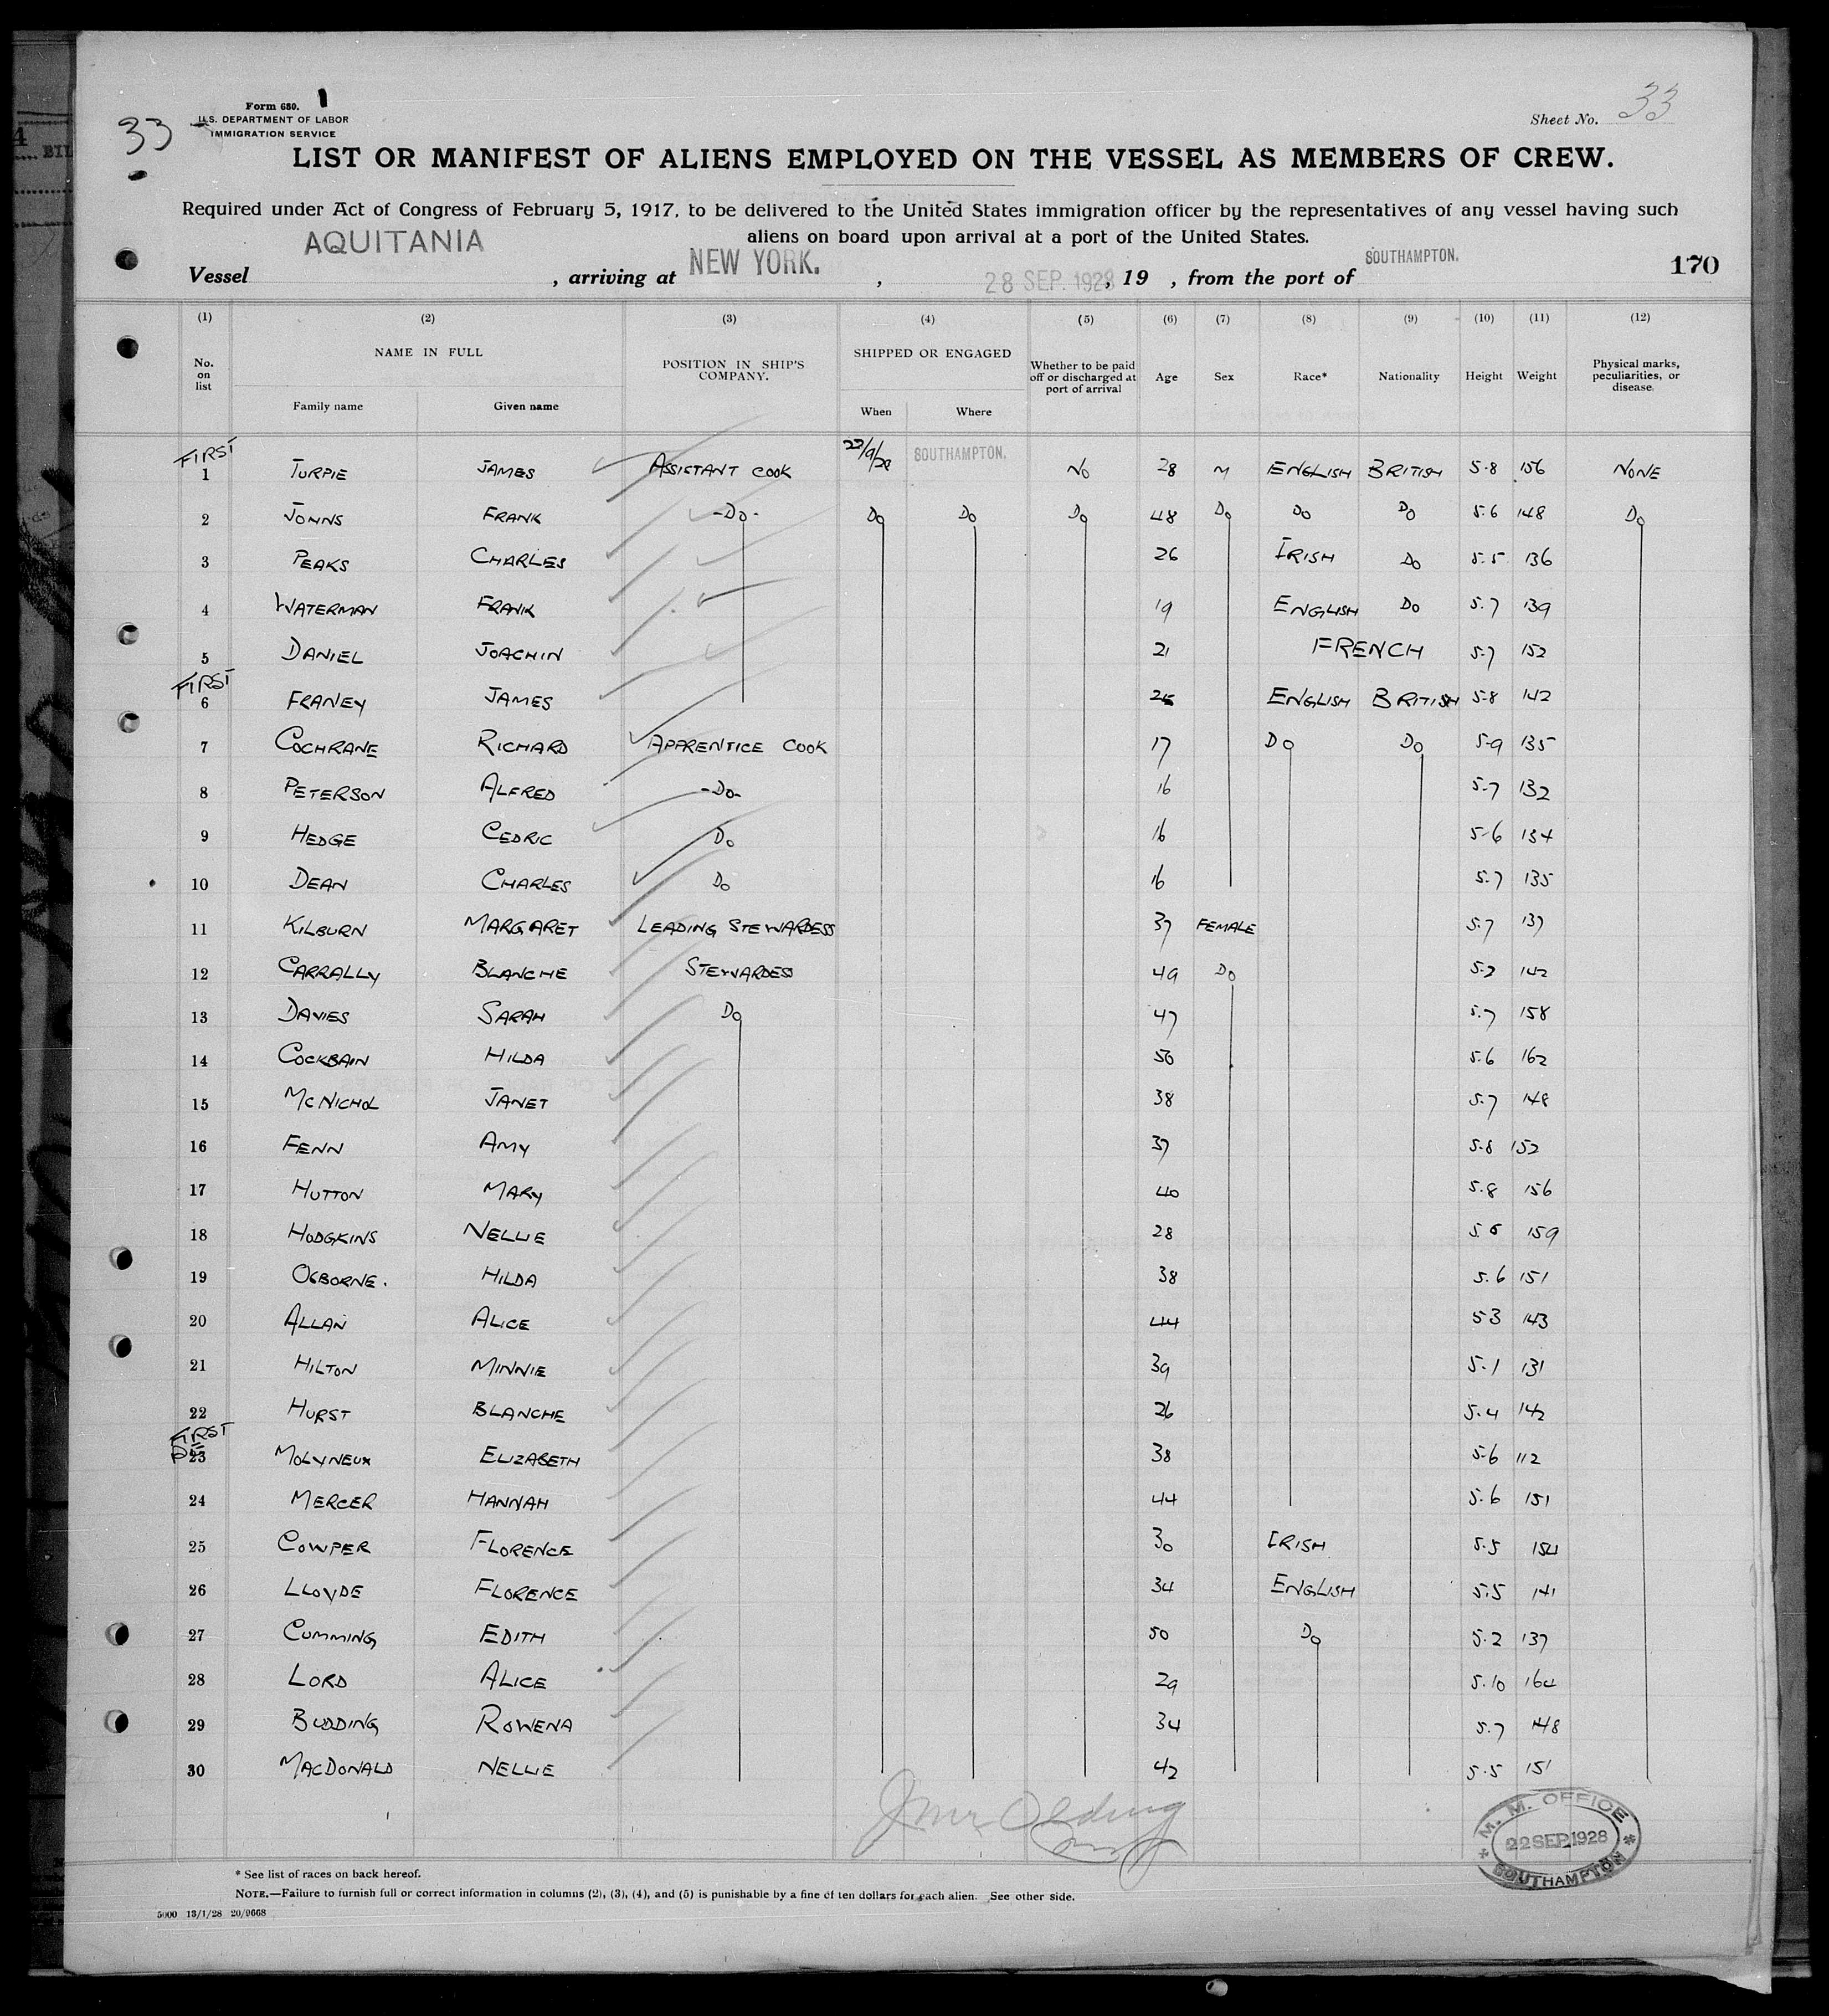 Form 680.
U.S. DEPARTMENT OF LABOR
IMMIGRATION SERVICE
33
Sheet No. 33
LIST OR MANIFEST OF ALIENS EMPLOYED ON THE VESSEL AS MEMBERS OF CREW.
Required under Act of Congress of February 5, 1917, to be delivered to the United States immigration officer by the representatives of any vessel having such
aliens on board upon arrival at a port of the United States.
Vessel AQUITANIA , arriving at NEW YORK. , 28 SEP. 1928, 19 , from the port of SOUTHAMPTON. 170
(1) (2) (3) (4) (5) (6) (7) (8) (9) (10) (11) (12)
No. on list NAME IN FULL POSITION IN SHIP'S COMPANY. SHIPPED OR ENGAGED Whether to be paid off or discharged at port of arrival Age Sex Race* Nationality Height Weight Physical marks, peculiarities, or disease.
Family name Given name When Where
FIRST
1 TURPIE JAMES ASSISTANT COOK 22/9/28 SOUTHAMPTON. NO 28 M ENGLISH BRITISH 5-8 156 NONE
2 JOHNS FRANK -DO- DO DO DO 48 DO DO DO 5.6 148 DO
3 PEAKS CHARLES 26 IRISH DO 5-5 136
4 WATERMAN FRANK 19 ENGLISH DO 5.7 139
5 DANIEL JOACHIN 21 FRENCH 5-7 152
FIRST
6 FRANEY JAMES 25 ENGLISH BRITISH 5-8 142
7 COCHRANE RICHARD APPRENTICE COOK 17 DO DO 5-9 135
8 PETERSON ALFRED -DO- 16 5-7 132
9 HEDGE CEDRIC DO 16 5-6 134
10 DEAN CHARLES DO 16 5.7 135
11 KILBURN MARGARET LEADING STEWARDESS 37 FEMALE 5.7 137
12 CARRALLY BLANCHE STEWARDESS 49 DO 5.2 142
13 DAVIES SARAH DO 47 5.7 158
14 COCKBAIN HILDA 50 5.6 162
15 MCNICHOL JANET 38 5.7 148
16 FENN AMY 37 5.8 152
17 HUTTON MARY 40 5.8 156
18 HODGKINS NELLIE 28 5.6 159
19 OGBORNE. HILDA 38 5.6 151
20 ALLAN ALICE 44 53 143
21 HILTON MINNIE 39 5.1 131
22 HURST BLANCHE 26 5.4 142
FIRST
23 MOLYNEUX ELIZABETH 38 5-6 112
24 MERCER HANNAH 44 5.6 151
25 COWPER FLORENCE 30 IRISH 5.5 154
26 LLOYDE FLORENCE 34 ENGLISH 5.5 141
27 CUMMING EDITH 50 DO 5.2 137
28 LORD ALICE 29 5.10 164
29 BUDDING ROWENA 34 5.7 148
30 MACDONALD NELLIE 42 5.5 151
M. M. OFFICE
22 SEP 1928
SOUTHAMPTON
* See list of races on back hereof.
NOTE.—Failure to furnish full or correct information in columns (2), (3), (4), and (5) is punishable by a fine of ten dollars for each alien. See other side.
5000 13/1/28 20/9668